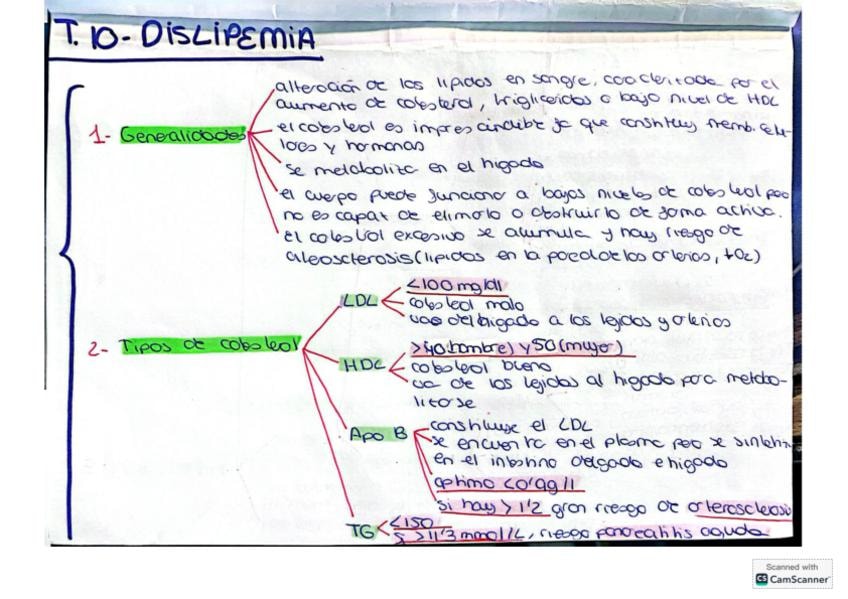 T.10- DISLIPEMIA
1- Generalidades
alteración de los lípidos en sangre, caracterizada por el
aumento de colesterol, trigliceridos o bajo nivel de HDL
el colesterol es imprescindible ya que constituye memb. celu-
lares y hormonas
se metaboliza en el higado
el cuerpo puede funcionar a bajos niveles de colesterol pero
no es capaz de eliminarlo o destruirlo de forma activa.
el colesterol excesivo se acumula y hay riesgo de
ateosclerosis (lipidos en la pared de las arterias, ↓O2)
2- Tipos de colesterol
LDL
<100 mg/dl
colesterol malo
va del higado a los tejidos y arterias
HDL
>40 (hombre) y 50 (mujer)
colesterol bueno
va de los tejidos al higado para metabo-
lizarse
Apo B
constituye el LDL
se encuentra en el plasma pero se sintetiza
en el intestino delgado e higado
optimo <0'9g/l
si hay >1'2 gran riesgo de arterosclerosis
TG
<150
si >11'3 mmol/L, riesgo pancreatitis aguda
Scanned with
CS CamScanner